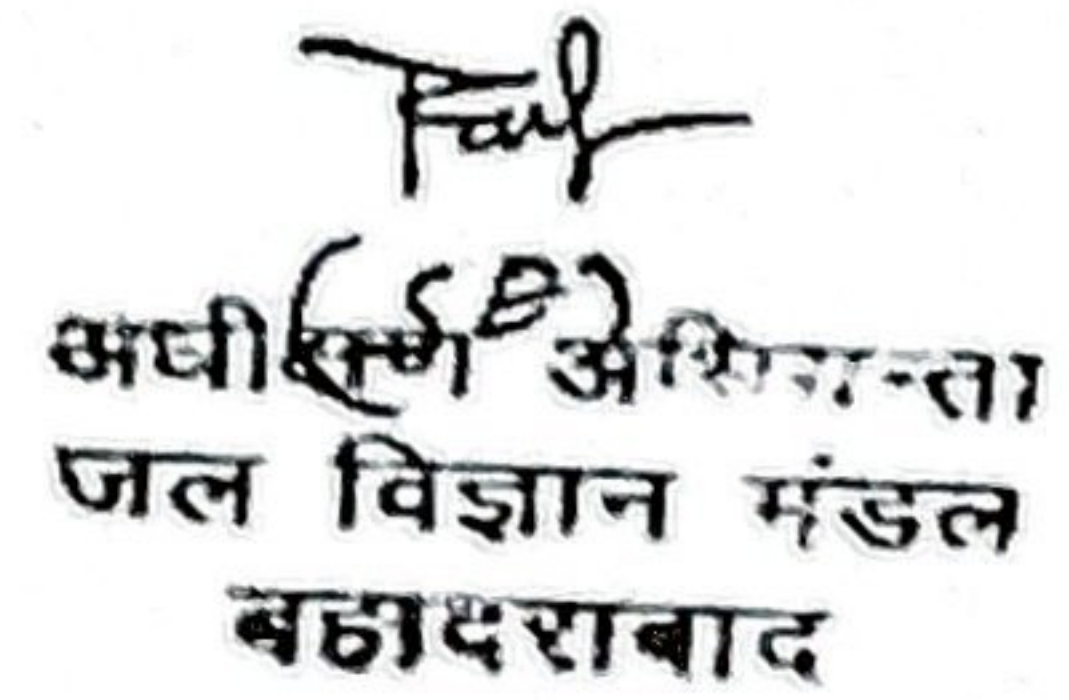 अधीक्षण अभियन्ता
जल विज्ञान मंडल
बहादराबाद